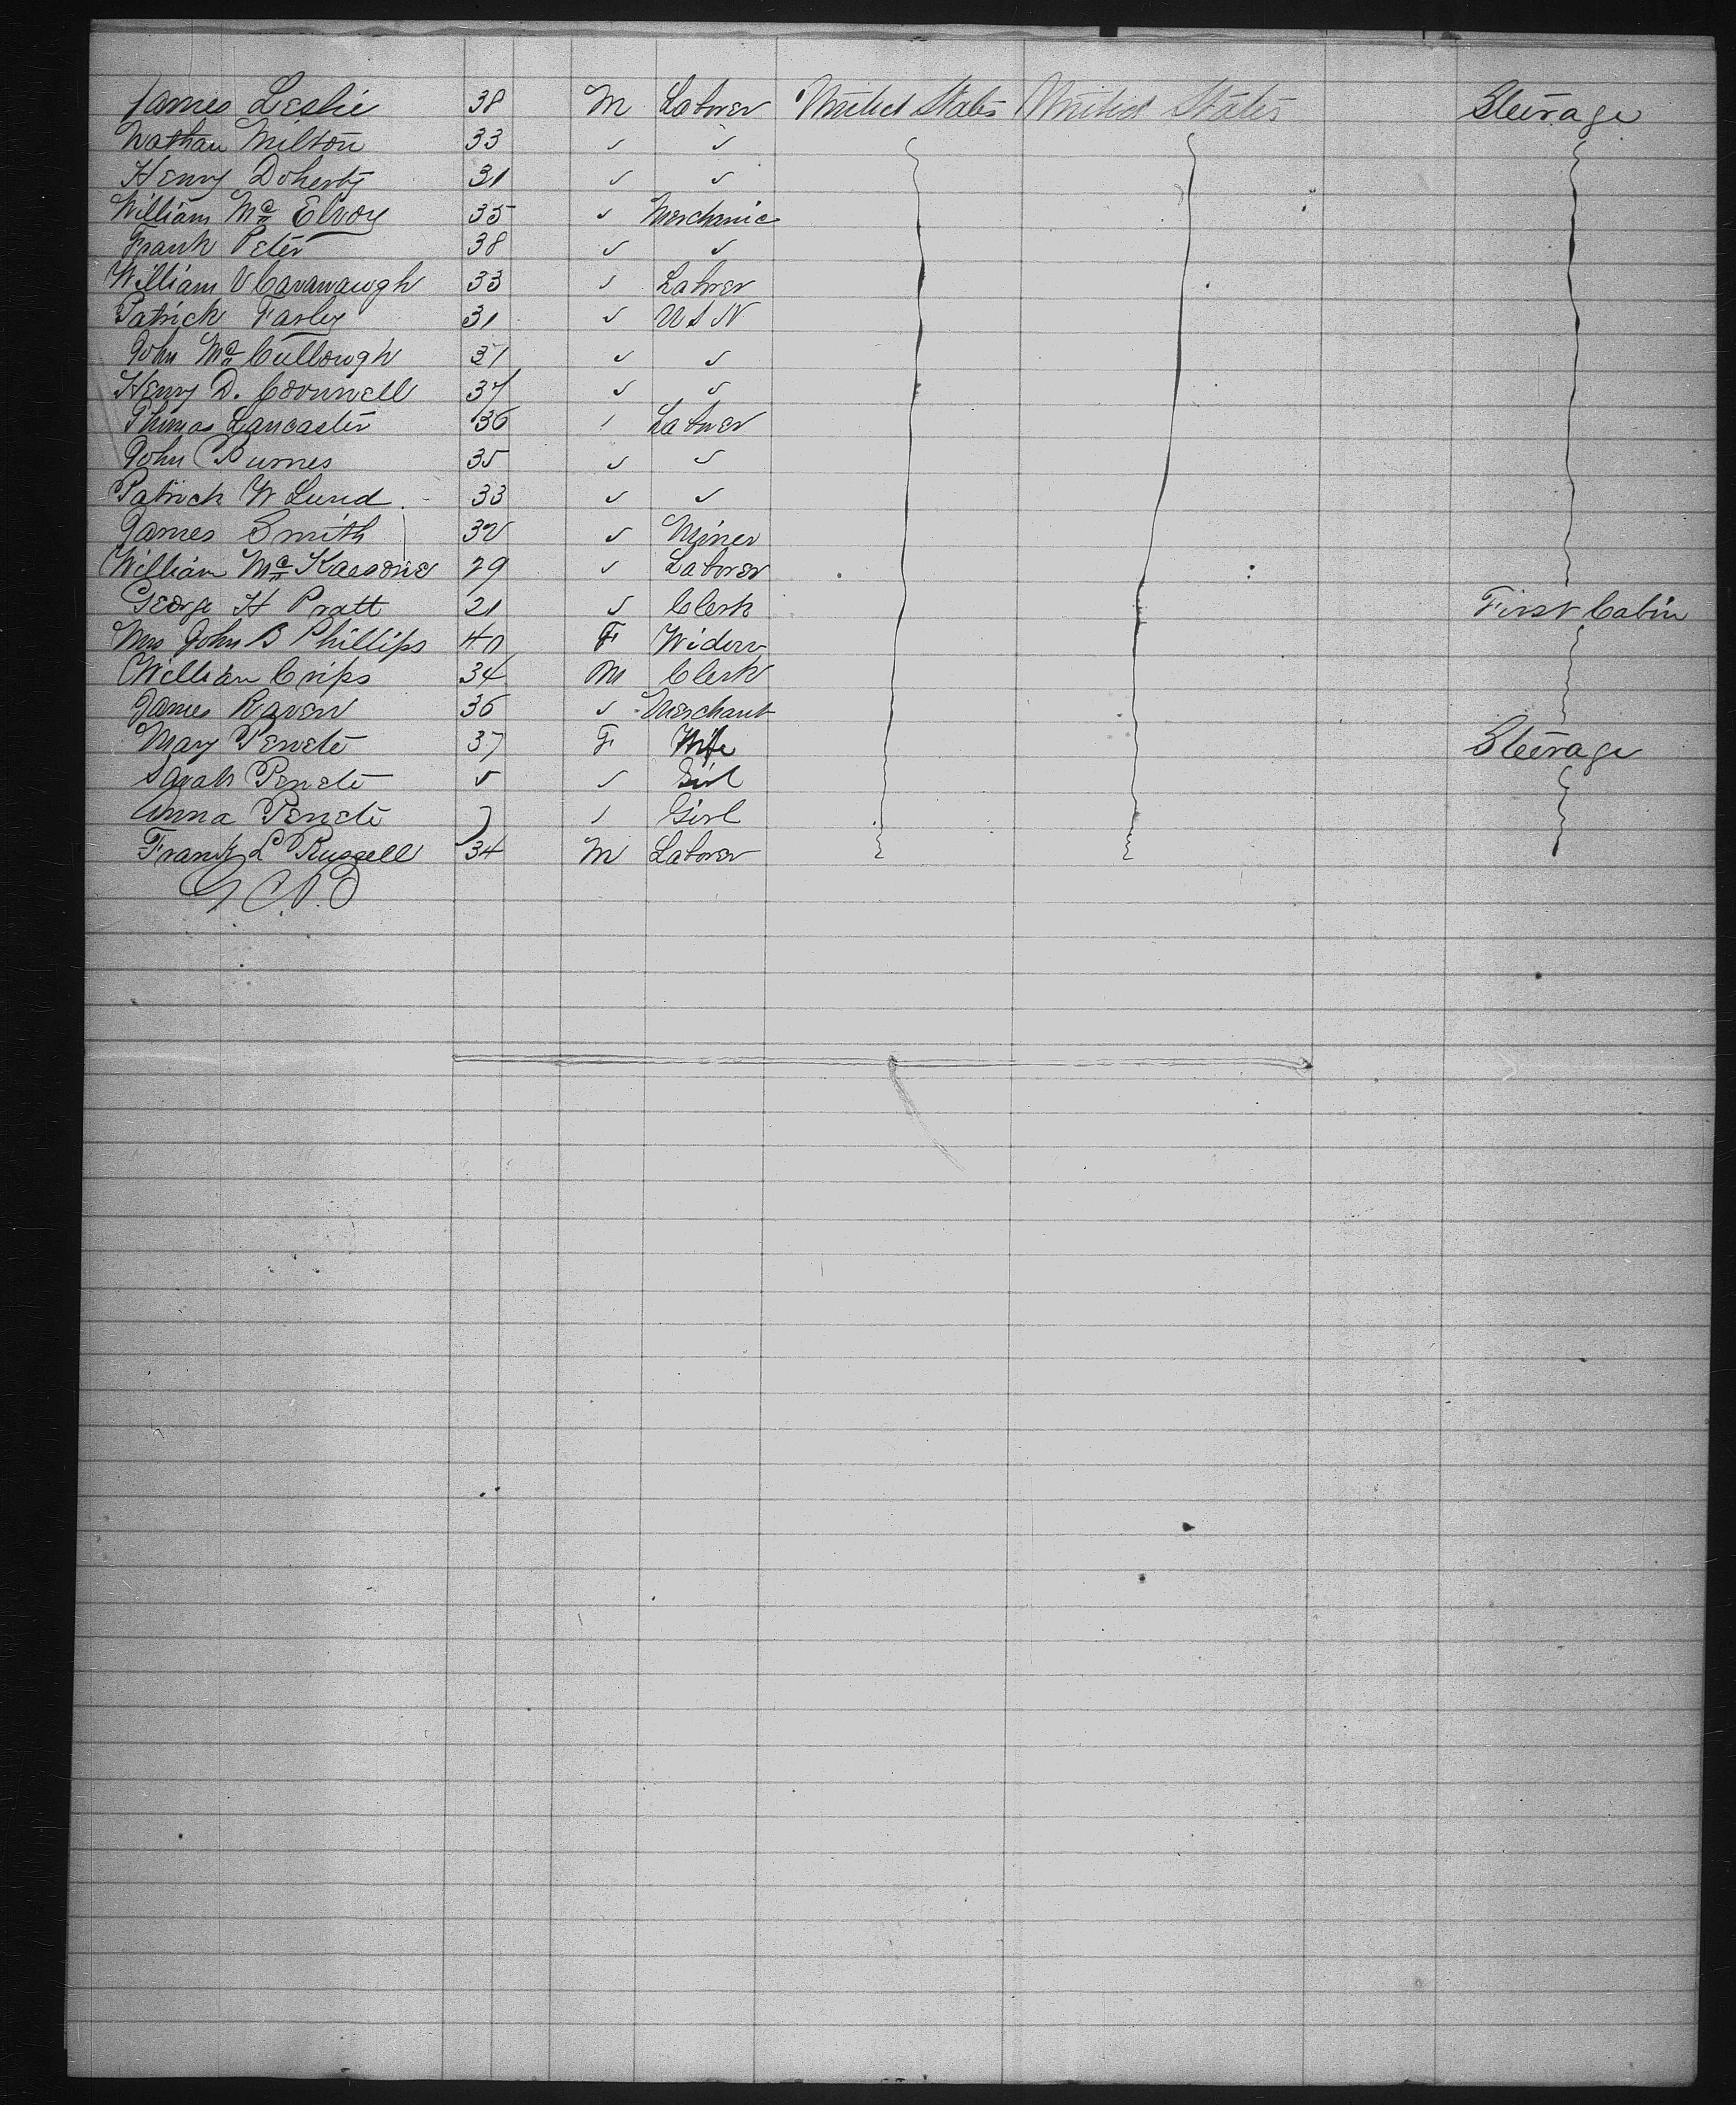 James Leslie 38 M Laborer United States United States Steerage
Nathan Milton 33 ✓ ✓
Henry Doherty 31 ✓ ✓
William Mc Elvoy 35 ✓ Merchanic
Frank Peter 38 ✓ ✓
William V Cavanaugh 33 ✓ Laborer
Patrick Farley 31 ✓ U S N
John Mc Cullough 31 ✓ ✓
Henry D. Cornwell 37 ✓ ✓
Thomas Lancaster 36 ✓ Laborer
John Burnes 35 ✓ ✓
Patrick W Lund 33 ✓ ✓
James Smith 32 ✓ Miner
William Mc 29 ✓ Laborer
George H Pratt 21 ✓ Clerk First Cabin
Mrs John B Phillips 40 F Widow
William Crips 34 M Clerk
James Raven 36 ✓ Merchant
Mary Penete 37 F Wife Steerage
Sarah Penete 5 ✓ Girl
Anna Penete 7 ✓ Girl
Frank L Russell 34 M Laborer